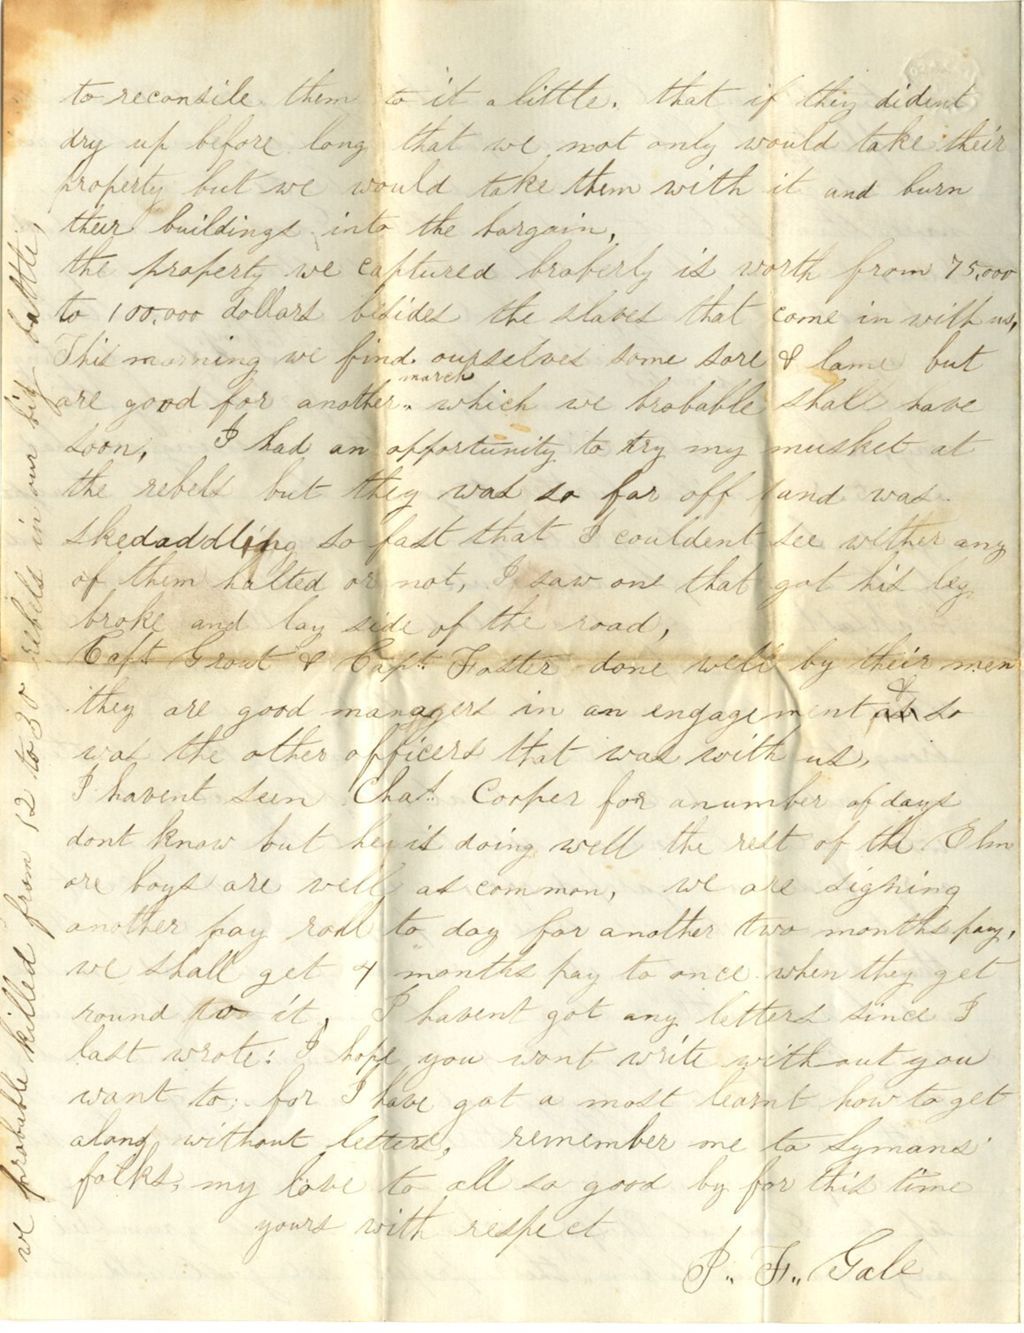 to reconsile them to it a little. that if they dident
dry up before long that we not only would take their
property but we would take them with it and burn
their buildings into the bargain,
the property we captured broberly is worth from 75.000
to 100.000 dollars besides the slaves that come in with us,
This morning we find ourselves some sore & lame but
march
are good for another. which we brobable shall have
soon, I had an opportunity to try my musket at
the rebels but they was so far off and was
skedaddling so fast that I couldent see wether any
of them halted or not, I saw one that got his leg
broke and lay side of the road,
Capt. Grout & Capt. Foster done well by their men
they are good managers in an engagement & so
was the other officers that was with us,
I havent seen Chas. Cooper for a number of days
dont know but he is doing well the rest of the Elm
ore boys are well as common, we are signing
another pay roll to day for another two months pay,
we shall get 4 months pay to once when they get
round to it, I havent got any letters since I
last wrote: I hope you wont write without you
want to; for I have got a most learnt how to get
along without letters, remember me to Lymans
folks, my love to all so good by for this time
yours with respect
P.. F.. Gale
we probable killed from 12 to 30 rebels in our big battle,